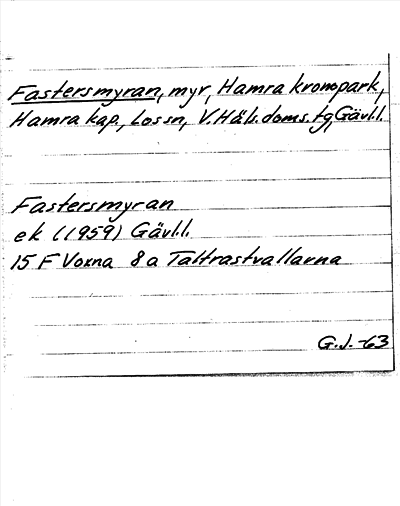 Fastersmyran, myr, Hamra kronopark,
Hamra kap., Lossn, V. Häls. doms. tg, Gävl.l.
Fastersmyran
ek (1959) Gävl.l.
15 F Voxna 8a Talltrastvallarna
G.J. -63